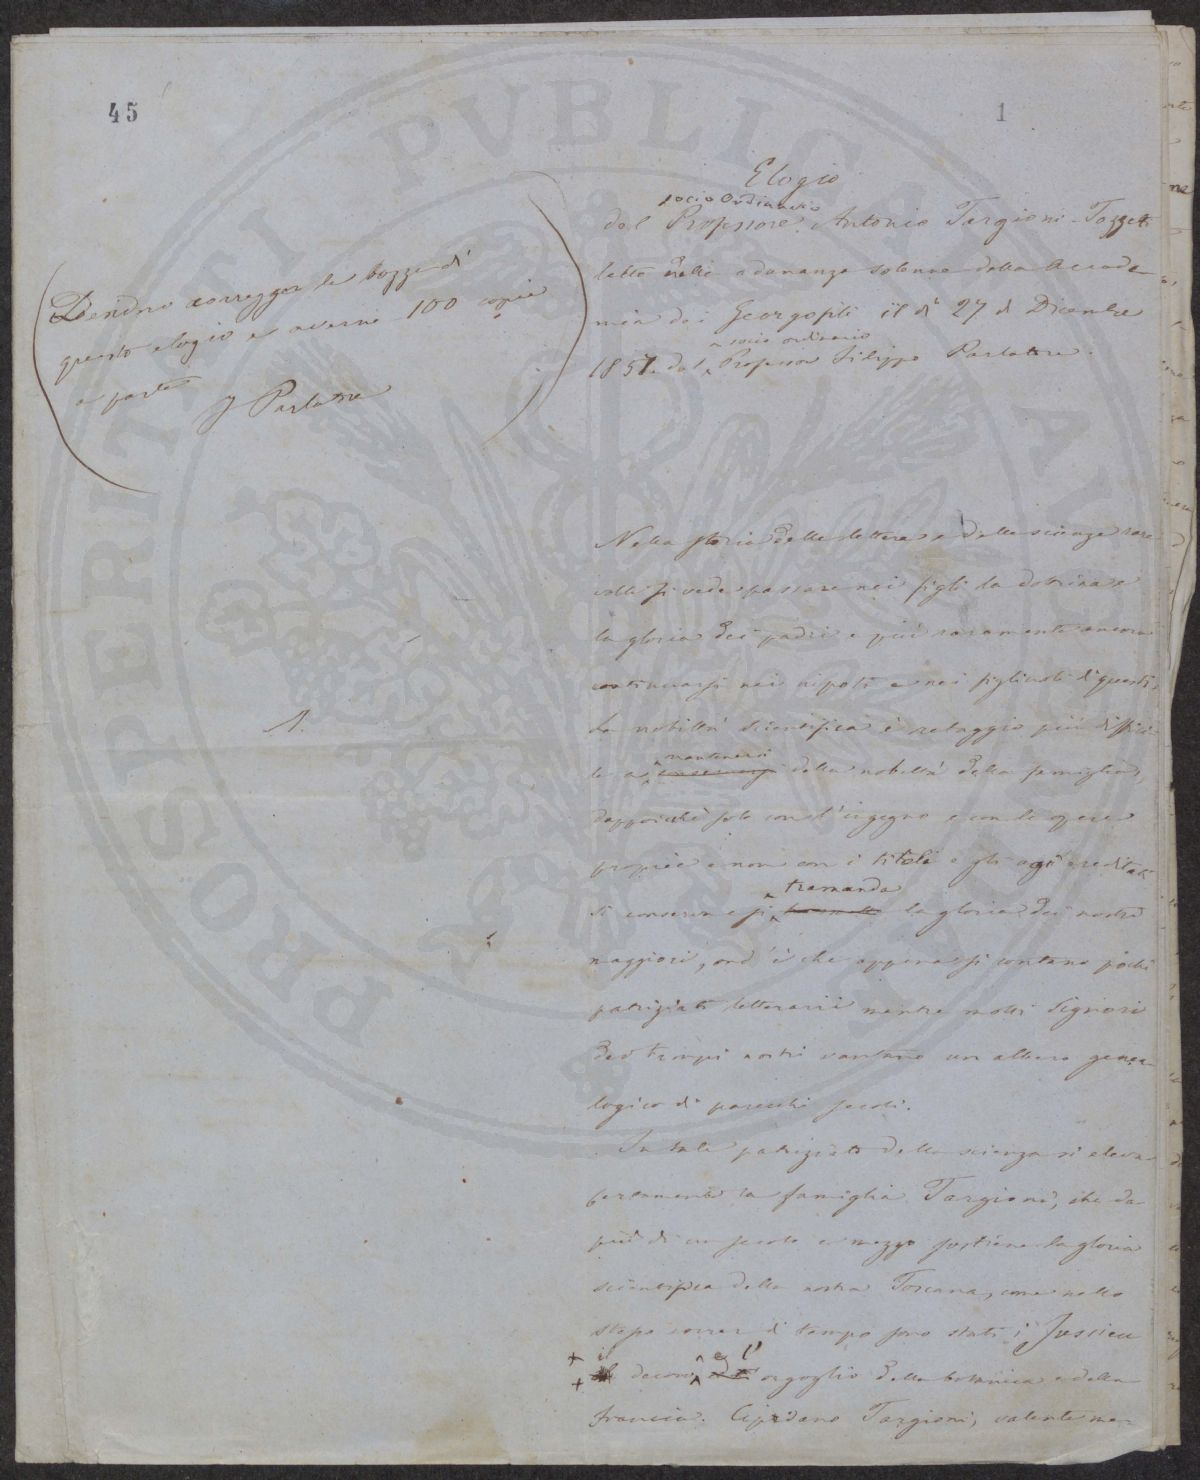 45
1
Elogio
socio Ordinario
del Professore Antonio Targioni-Tozzetti
letto nella adunanza solenne della Accade-
mia dei Georgofili il dì 27 di Dicembre
socio ordinario
1857 dal Professor Filippo Parlatore.
Desidero correggere le bozze di
questo elogio e averne 100 copie
a parte
F Parlatore
Nella storia delle lettere e delle scienze rare
volte si vede passare nei figli la dottrina e
la gloria dei padri e più raramente ancora
continuarsi nei nipoti e nei figliuoli di questi.
1.
La nobiltà scientifica è retaggio più diffici-
mantenersi
le a conservarsi della nobiltà della famiglia,
dappoichè solo con l'ingegno e con le opere
proprie e non con i titoli e gli agi ereditati
tramanda
si conserva e si la gloria dei nostri
maggiori, ond'è che appena si contano pochi
patriziati letterarii mentre molti Signori
dei tempi nostri vantano un albero genea-
logico di parecchi secoli.
In tale patriziato della scienza si eleva
certamente la famiglia Targioni, che da
più di un secolo e mezzo sostiene la gloria
scientifica della nostra Toscana, come nello
stesso correr di tempo sono stati i Jussieu
+ il e l'
+ decoro orgoglio della botanica e della
Francia. Cipriano Targioni, valente me-
PROSPERITATI PVBLICAE AVGENDAE